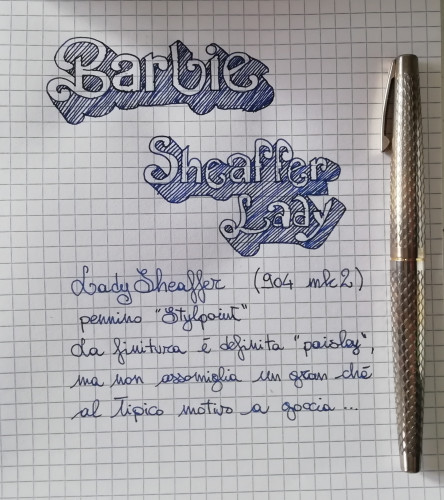 Barbie
Sheaffer
Lady
Lady Sheaffer (904 mk2)
pennino "Stylpoint"
La finitura é definita "paisley",
ma non assomiglia un gran ché
al tipico motivo a goccia ...